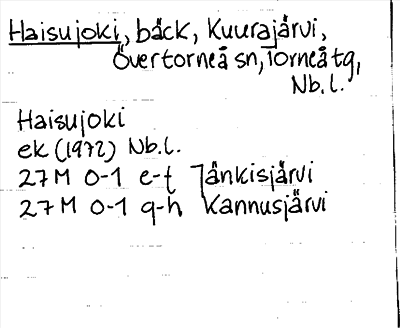 Haisujoki, bäck, Kuurajärvi,
Övertorneå sn, Torneå tg,
Nb.l.
Haisujoki
ek (1972) Nb.l.
27 M 0-1 e-f Jänkisjärvi
27 M 0-1 g-h Kannusjärvi